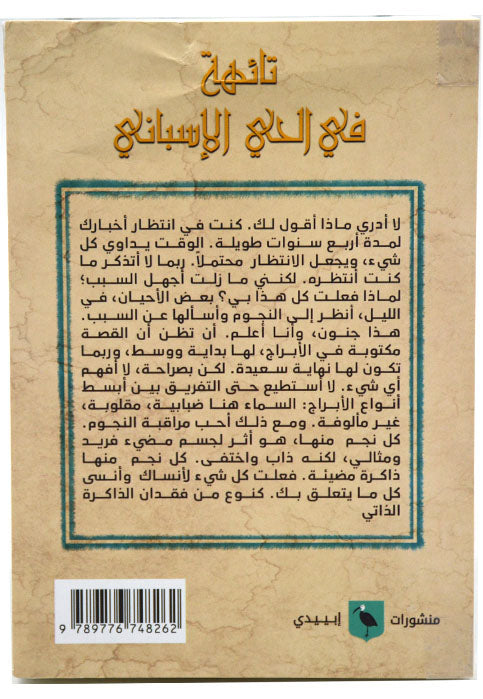 تائهة
في الحي الإسباني
لا أدري ماذا أقول لك. كنت في انتظار أخبارك
لمدة أربع سنوات طويلة. الوقت يداوي كل
شيء، ويجعل الانتظار محتملاً. ربما لا أتذكر ما
كنت أنتظره. لكنني ما زلت أجهل السبب؛
لماذا فعلت كل هذا بي؟ بعض الأحيان، في
الليل، أنظر إلى النجوم وأسألها عن السبب.
هذا جنون، وأنا أعلم. أن تظن أن القصة
مكتوبة في الأبراج، لها بداية ووسط، وربما
تكون لها نهاية سعيدة. لكن بصراحة، لا أفهم
أي شيء. لا أستطيع حتى التفريق بين أبسط
أنواع الأبراج: السماء هنا ضبابية، مقلوبة،
غير مألوفة. ومع ذلك أحب مراقبة النجوم.
كل نجم منها، هو أثر لجسم مضيء فريد
ومثالي، لكنه ذاب واختفى. كل نجم منها
ذاكرة مضيئة. فعلت كل شيء لأنساك وأنسى
كل ما يتعلق بك. كنوع من فقدان الذاكرة
الذاتي
منشورات إيبيدي
9 789776 748262